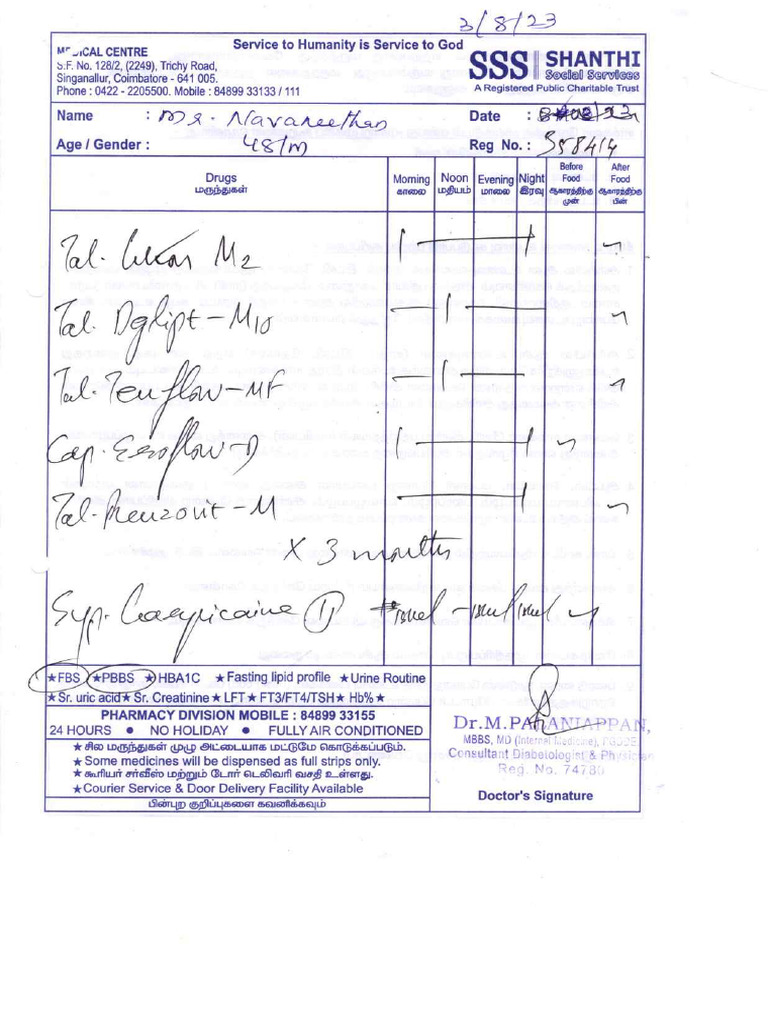 3/8/23
Service to Humanity is Service to God
MEDICAL CENTRE
S.F. No. 128/2, (2249), Trichy Road,
Singanallur, Coimbatore - 641 005.
Phone : 0422 - 2205500. Mobile : 84899 33133 / 111
SSS SHANTHI
Social Services
A Registered Public Charitable Trust
Name : Mr. Navaneethan
Date :
Age / Gender : 48/M
Reg No. : 358414
Drugs Morning Noon Evening Night Before Food After Food
மருந்துகள் காலை மதியம் மாலை இரவு ஆகாரத்திற்கு முன் ஆகாரத்திற்கு பின்
Tab. M2 1 — 1
Tab. Dglipt - M10 — 1 —
Tab. Tenflow - MF — 1 —
Cap. Esoflow - D
Tab. - M
X 3 months
Syp.
★ FBS ★ PBBS ★ HBA1C ★ Fasting lipid profile ★ Urine Routine
★ Sr. uric acid ★ Sr. Creatinine ★ LFT ★ FT3/FT4/TSH ★ Hb% ★
PHARMACY DIVISION MOBILE : 84899 33155
24 HOURS ● NO HOLIDAY ● FULLY AIR CONDITIONED
★ சில மருந்துகள் முழு அட்டையாக மட்டுமே கொடுக்கப்படும்.
★ Some medicines will be dispensed as full strips only.
★ கூரியர் சர்வீஸ் மற்றும் டோர் டெலிவரி வசதி உள்ளது.
★ Courier Service & Door Delivery Facility Available
பின்புற குறிப்புகளை கவனிக்கவும்
Dr.M.PALANIAPPAN,
MBBS, MD (Internal Medicine), PGDDE,
Consultant Diabetologist & Physician
Reg. No. 74780
Doctor's Signature